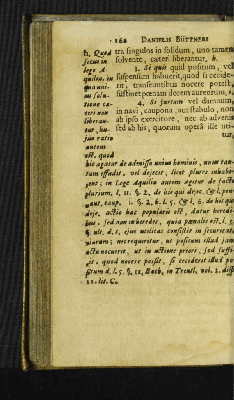 162 DANIELIS BÜTTNERI
tra singulos in solidum, uno tamen
solvente, cæteri liberantur. b.
3. Si quis quid positum, vel
suspensum habuerit, quod si cecide-
rit, transeuntibus nocere potest,
sustinet pœnam decem aureorum.
4. Si furtum vel damnum,
in navi, caupona, aut stabulo, non
ab ipso exercitore, nec ab
sed ab his, quorum opera ille uti-
tur,
b. Quod
secus in
lege A-
quilia, in
qua uni-
us solu-
tione cæ-
teri non
liberan-
tur, hu-
jus ratio
autem
est, quod
hic agatur de admisso unius hominis, nam
sum effudit, vel dejecit, licet plures inhabi-
gent; in Lege Aquilia autem agitur de facto
plurium, l. 11. §. 2. de his qui dejec.
caup. i. §. 2. 6. l. 5. de his
deje. actio hæc popularis est, datur heredi-
bus, sed non in heredes, quia pœnalis est, l. 5.
§. ult. d. t. ejus utilitas consistit in
nec requiritur, ut positum illud jam
nocuerit, ut in actione priori, sed suffi-
cit, quod nocere possit, si ceciderit illud po-
situm d. l. 5. §. 11, Bach. in Treutl. vol. 1. disp.